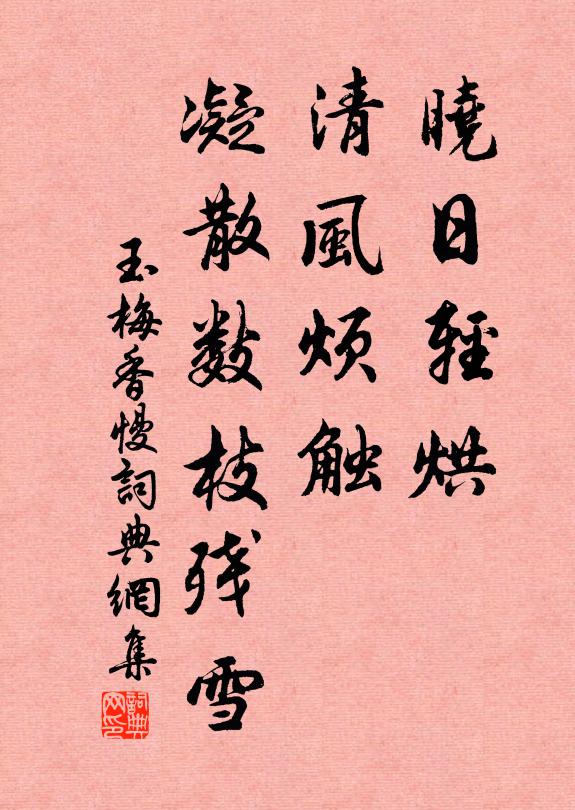 曉日輕烘
清風煩触
凝散数枝残雪
玉梅香慢詞典網集
詞典网印